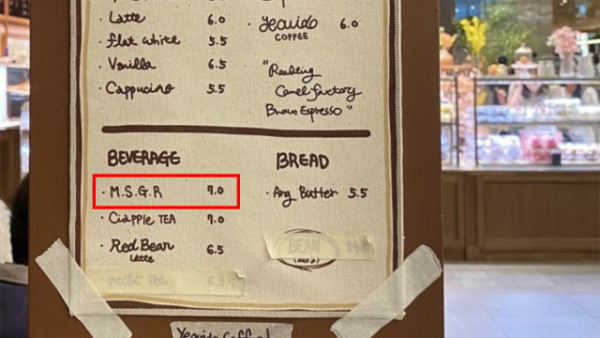 Latte 6.0
Flat white 5.5
Vanilla 6.5
Cappucino 5.5
Yeouido 6.0
COFFEE
"Realting
Camel factory
Brown Espresso"
BEVERAGE
· M.S.G.R 7.0
· Ciapple TEA 7.0
· Red Bean 6.5
Latte
Milk TEA
BREAD
· Ang Butter 5.5
BEAN
Yeouido Coffee!